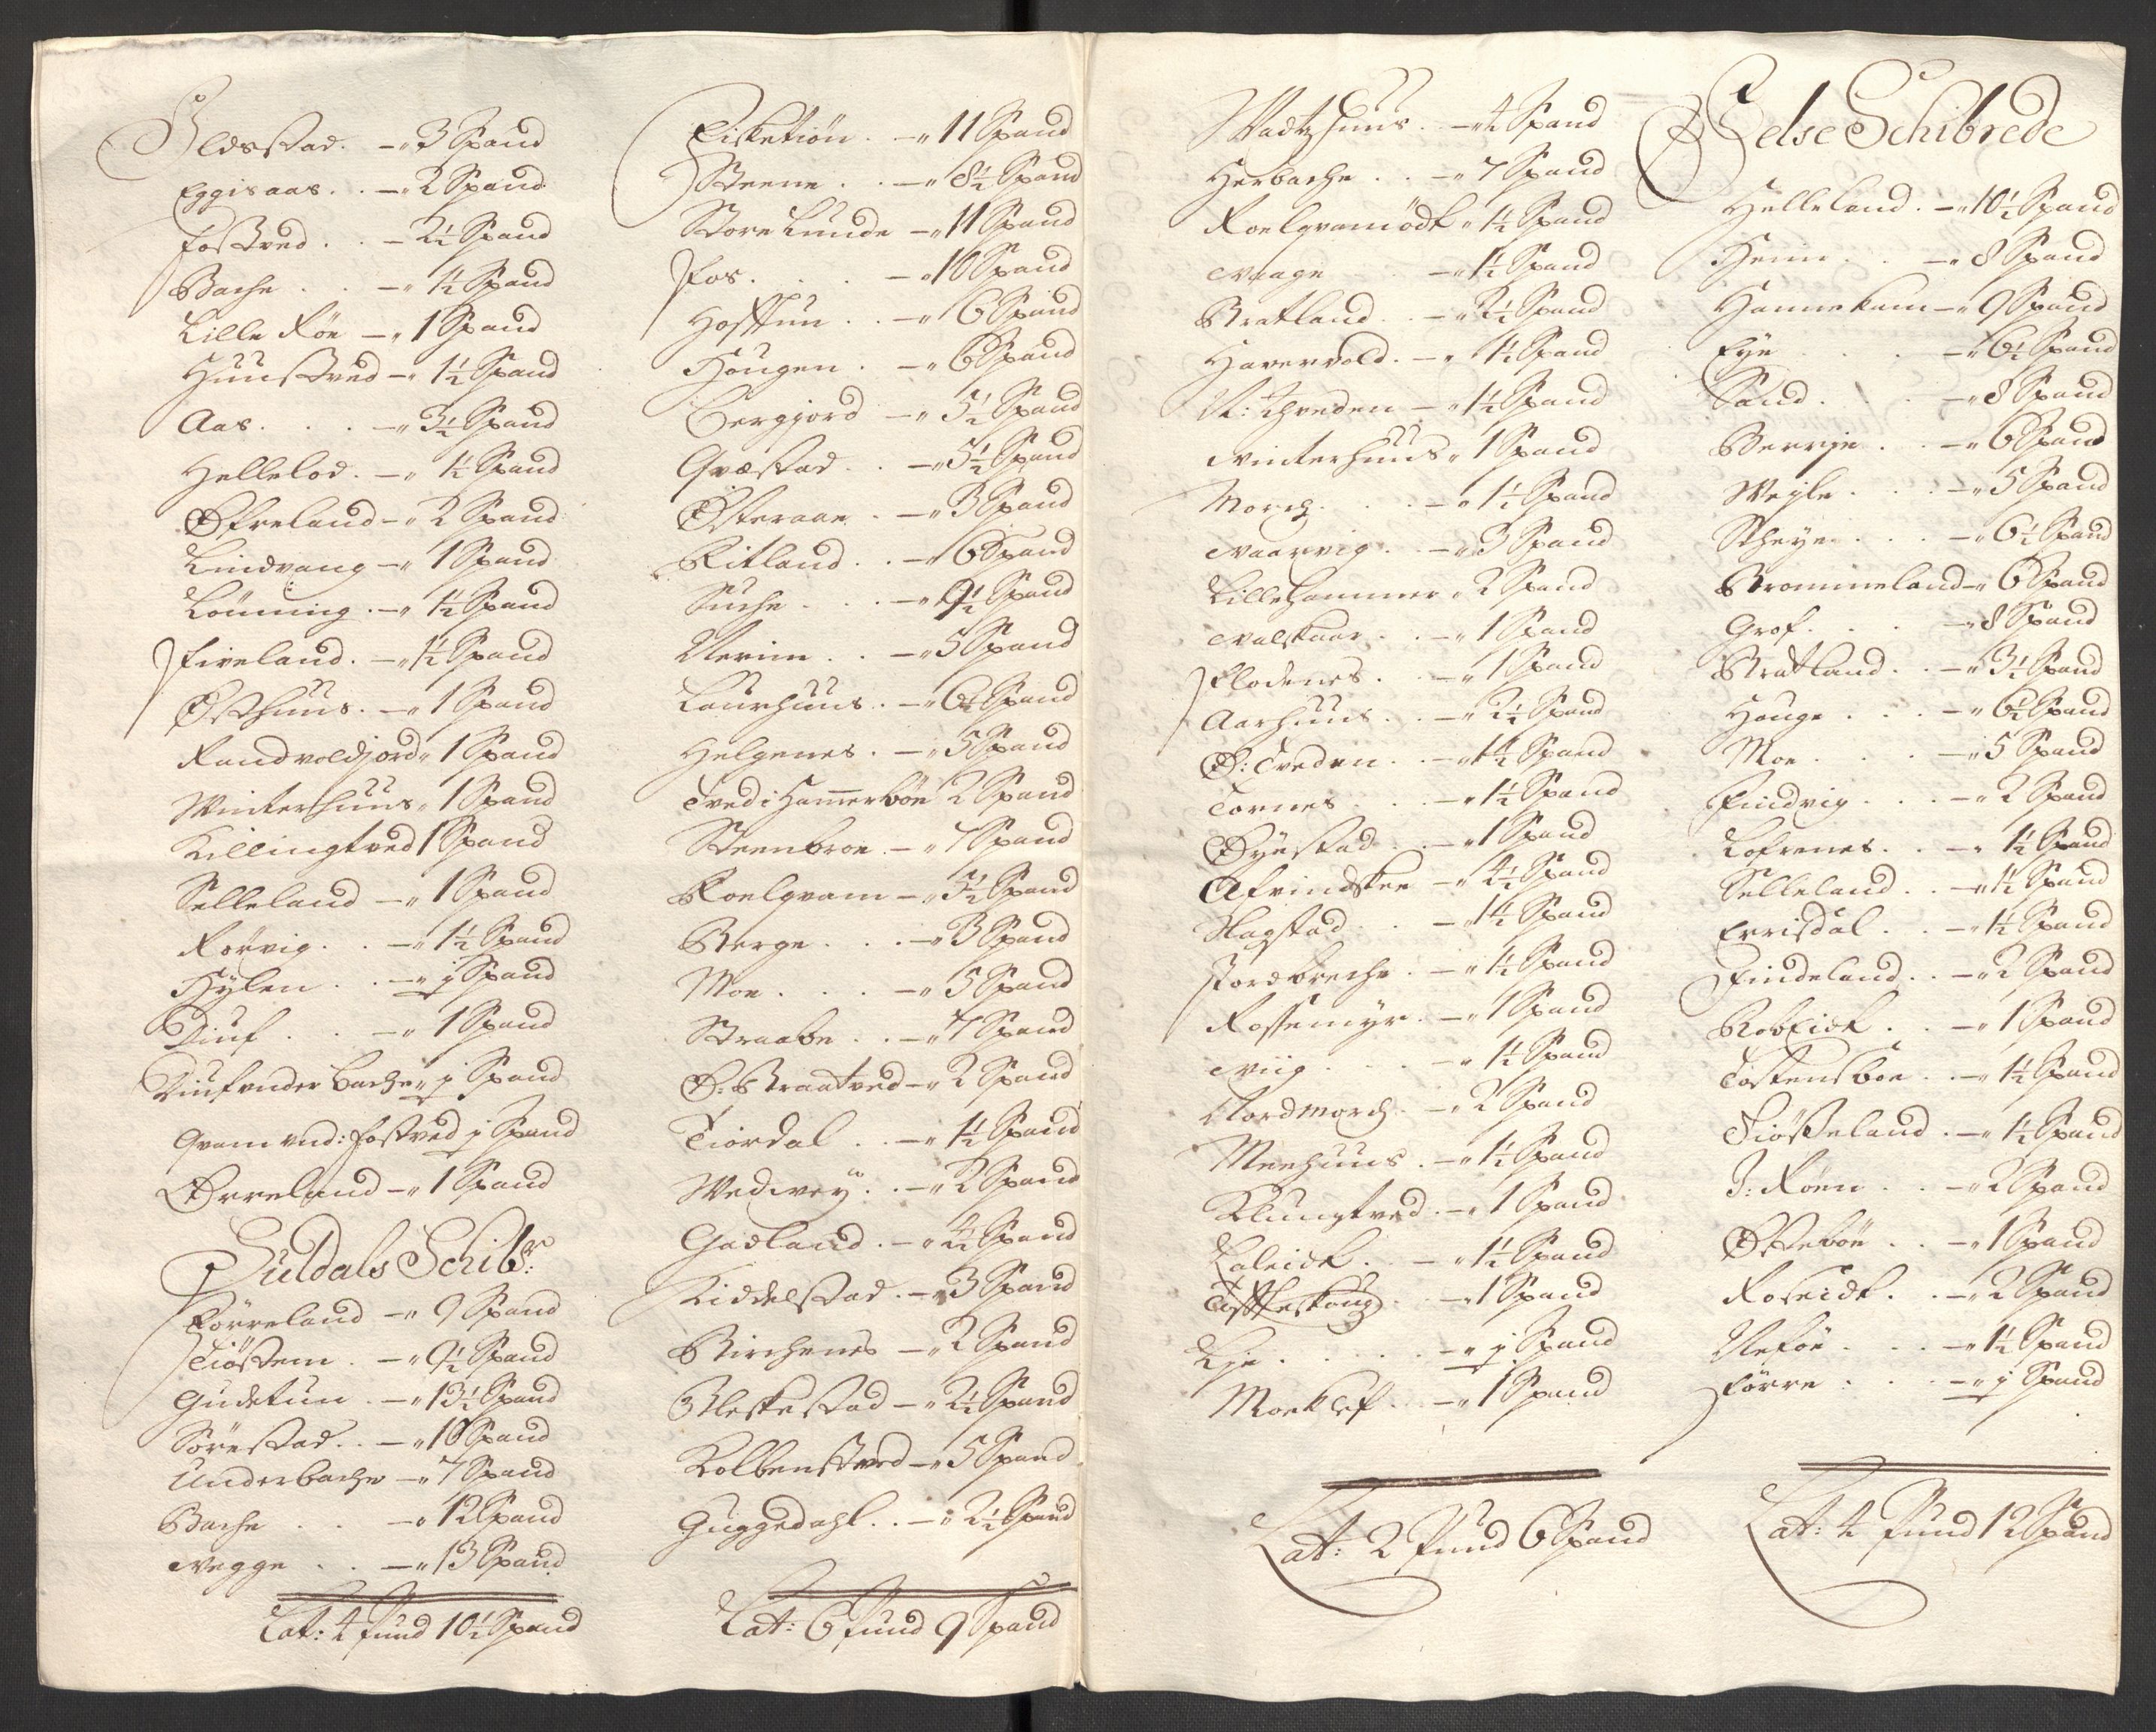 Eldsstad. -" 3 Spand
Eggisaas. . -" 2 Spand
Fostved. . - 2½ Spand
Bache . . -" 1½ Spand
Lille Röe -" 1 Spand
Huustved -" 1½ Spand
Aas. . . -" 3½ Spand
Hellelod. -" 1½ Spand
Øfreland -" 2 Spand
Lindvang -" 1 Spand
Lönning. -" 1½ Spand
Fiveland. -" 1½ Spand
Østhuus. -" 1 Spand
Randvoldjord " 1 Spand
Winterhuus " 1 Spand
Killingtved 1 Spand
Selleland -" 1 Spand
Rörvig. . -" 1½ Spand
Hylen . . -" j Spand
Diuf . . -" 1 Spand
Diuf under Bache " j Spand
Qvam und: Fostved j Spand
Ørreland -" 1 Spand
Suldals Schibr:
Förreland -" 9 Spand
Tiöstem . -" 9½ Spand
Gudetun . -" 13½ Spand
Sörestad. . -" 10 Spand
Underbache -" 7 Spand
Bache . . -" 12 Spand
Vegge . . -" 13 Spand
Lat: 4 Pund 10½ Spand
Fisketiön . -" 11 Spand
Steene . . -" 8½ Spand
Store Lunde -" 11 Spand
Fos. . . -" 10 Spand
Hoftun . . -" 6 Spand
Hougen . -" 6 Spand
Bergjord -" 5½ Spand
Qvæstad. . -" 5½ Spand
Østeraae . -" 3 Spand
Ritland. . -" 6 Spand
Suche . . -" 9½ Spand
Nerim . . -" 5 Spand
Laurhuus . -" 6½ Spand
Helgenes . -" 5 Spand
Tved i Hamerböe 2 Spand
Steenbroe . -" 7 Spand
Roelqvam -" 5½ Spand
Berge . . . -" 3 Spand
Moe . . . -" 5 Spand
Straabe . . -" 7 Spand
Ø: Braatved -" 2 Spand
Tiordal . . -" 1½ Spand
Wedvey . . -" 2 Spand
Gadland . -" 4½ Spand
Kiddelstad . -" 3 Spand
Birchenes -" 2 Spand
Bleskestad -" 2½ Spand
Kolbenstved -" 5 Spand
Guggedahl . . -" 2½ Spand
Lat: 6 Pund 9 Spand
Wadtzhuus . -" 4 Spand
Herbache . . -" 7 Spand
Roelqvamödt " 1½ Spand
Vaage -" 1½ Spand
Bratland . . -" 2½ Spand
Havrevold . -" 1½ Spand
N: Schreden -" 1½ Spand
Vinterhuus " 1 Spand
Morch . . . -" 1½ Spand
Vaarvig . -" 3 Spand
Lillehammer " 2 Spand
Valskaar . . -" 1 Spand
Flodenes . . -" 1 Spand
Aarhuus . . -" 2½ Spand
Ø: Tveden . . -" 1½ Spand
Tornes . . . -" 1½ Spand
Øyestad . . -" 1 Spand
Afvindskee -" 4½ Spand
Hagstad . . -" 1½ Spand
Fordbreche . -" 1½ Spand
Rossemyr . -" 1 Spand
Viig . . . -" 1½ Spand
Nordmorch . -" 2 Spand
Meehuus . -" 1½ Spand
Klungtved . -" 1 Spand
Laleidt . . -" 1½ Spand
-" 1 Spand
Lje . . . . -" j Spand
Moeklef . . -" 1 Spand
Lat: 2 Pund 6 Spand
Jelse Schibrede
Helleland . -" 10½ Spand
Heim . . -" 8 Spand
Hannekam -" 9 Spand
Eye . . . -" 6½ Spand
Sand . . . -" 8 Spand
Berrje . . -" 6 Spand
Weyle . . . -" 5 Spand
Scheye . . . -" 6½ Spand
Brommeland -" 6 Spand
Grof . . . -" 8 Spand
Bratland . . -" 3½ Spand
Houge . . . -" 6½ Spand
Moe . . . -" 5 Spand
Findvig . . . -" 2 Spand
Lofrenes . . -" 1½ Spand
Selleland . . -" 1½ Spand
Errisdal . . -" 1½ Spand
Findeland . . -" 2 Spand
Robeidt . . -" 1 Spand
Tostensböe . . -" 1½ Spand
Fiösteland . -" 1½ Spand
J: Röen . . -" 2 Spand
Østeböe . . -" 1 Spand
Roseidt . . -" 2 Spand
Neföe . . . -" 1½ Spand
Förre . . . -" j Spand
Lat: 4 Pund 12 Spand